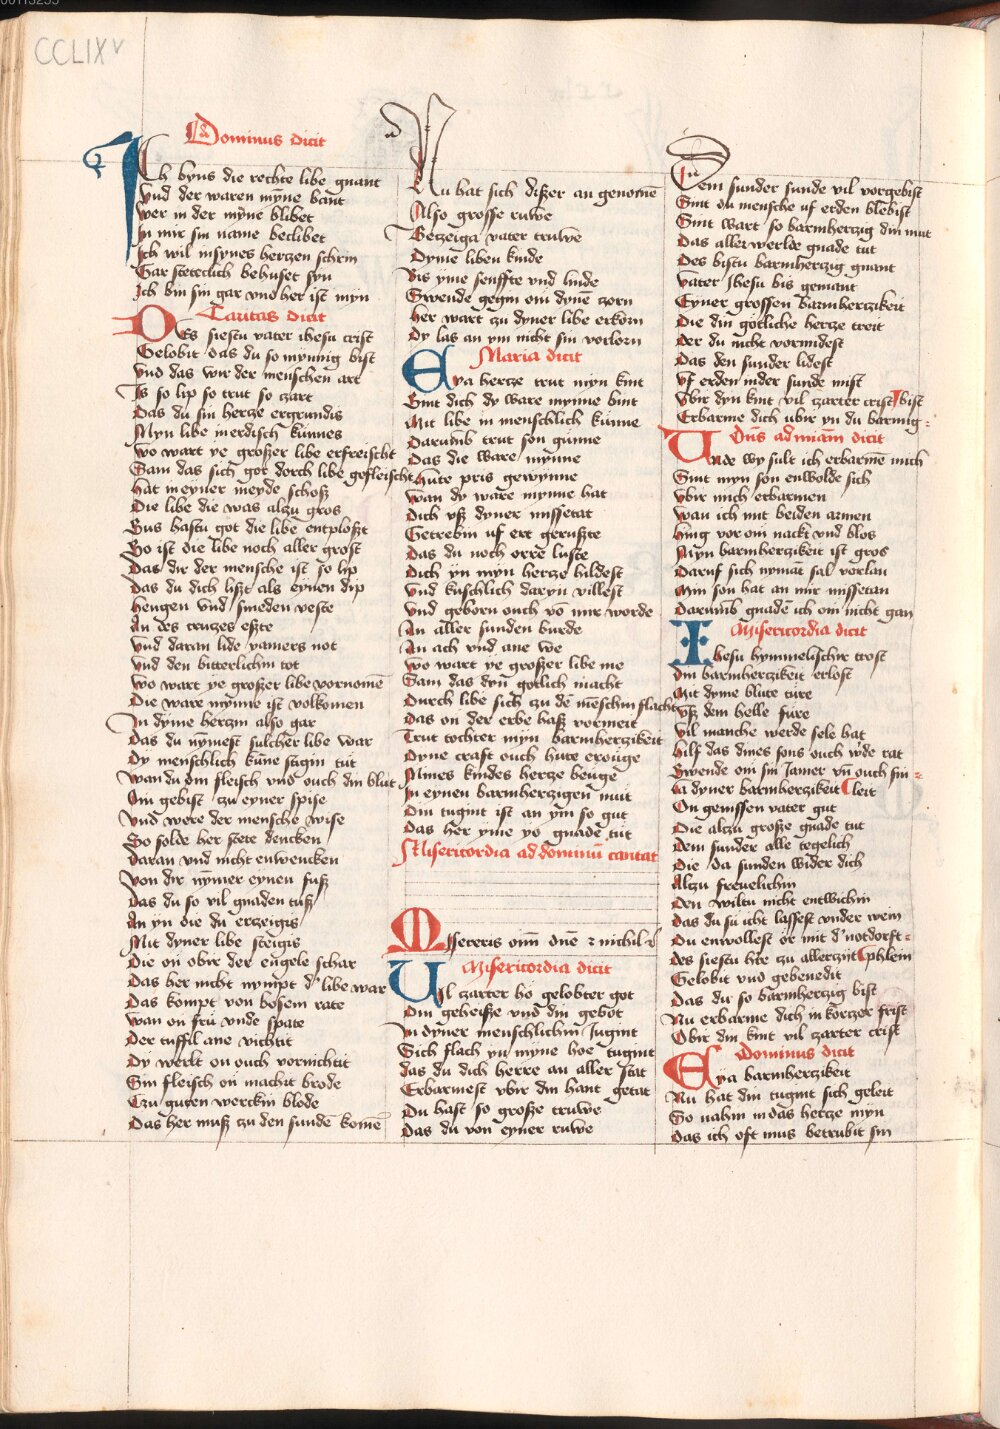 CCLIXv
Dominus dicit
Ich byns die rechte libe gnant
Vnd der waren mÿne bant
wer in der mÿne blibet
In mir sin name beclibet
Ich wil in synes herzen schrin
Gar steteclich behuset syn
Ich bin sin gar vnd her ist myn
Caritas dicit
Des siestu vater ihesu crist
Gelobit das du so mynnig bist
Vnd das wir der menschen art
Is so lip so trut so zart
Das du sin hercze ergrundis
Myn libe in erdisch kunnes
wo wart ye großer libe erfreischt
Sam das sich got dorch libe gefleischt
Hat in eyner meyde schoß
Die libe die was alzu gros
Sus hastu got die libe entploßt
So ist die libe noch aller grost
Das dir der mensche ist so lip
Das du dich lißt als eynen dip
Hengen vnd smeden veste
An des cruzes este
Vnd daran lide yamers not
Vnd den bitterlichin tot
wo wart ye großer libe vornomē
Die ware mynne ist volkomen
In dyme herzin also gar
Das du nÿmest sulcher libe war
Dy menschlich kūne stigin tut
wan du om fleisch vnd ouch din blut
Om gebist zu eyner spise
Vnd were der mensche wise
So solde her stete dencken
Daran vnd nicht enwencken
Von dir nÿmer eynen fuß
Das du so vil gnaden tust
An ÿn die du erzeigis
Mit dyner libe steigis
Die on obir der engele schar
Das her nicht nympt d' libe war
Das kompt von bosem rate
wan on fru vnde spate
Der tuffil ane vichtit
Dy werlt on ouch vornichtit
Sin fleisch on machit brode
Czu guten werckin blode
Das her muß zu den sundē komē
Nu hat sich dißer an genomē
Also grosse ruwe
Beczeiga vater truwe
Dyme liben kinde
Bis yme senffte vnd linde
Swende gegin om dyne zorn
Her wart zu dyner libe erkorn
Dy las an ym nicht sin vorlorn
Maria dicit
Eya hercze trut myn kint
Sint dich dy ware mynne bint
Mit libe in menschlich kunne
Darumb trut son gunne
Das die ware mynne
Hute pris gewynne
wan dy ware mynne hat
Dich vß dyner missetat
Getrebin uf ert gerußte
Das du noch orre luste
Dich yn myn hercze hildest
Vnd kuschlich daryn villest
Vnd geborn ouch vō mir worde
An aller sunden burde
An ach vnd ane we
wo wart ye großer libe me
Sam das dyn gotlich macht
Durch libe sich zu dē menschin flacht
Das on der erbe haß vormeit
Trut tochter myn barmherzikeit
Dyne craft ouch hute erouge
Mines kindes hercze beuge
In eynen barmherzigen mut
Din tugint ist an ym so gut
Das her yme yo gnade tut
Misericordia ad dominū cantat
Misereris omīn dnē ⁊ nichil
Misericordia dicit
Vil zarter ho gelobter got
Din geheiße vnd din gebot
In dyner menschlichin Jugint
Sich flach yn myne hoe tugint
das du dich herre an aller stat
Erbarmest vbir din hant getat
Du hast so große truwe
Das du von eyner ruwe
Dem sunder sunde vil vorgebist
Sint du mensche uf erden blebist
Sint wart so barmherzig din mut
Das aller werlde gnade tut
Des bistu barmherzig gnant
Vater Jhesu bis gemant
Eyner grossen barmherzikeit
Die din gotliche hercze treit
Der du nicht vormidest
Das den sunder lidest
Vf erden in der sunde mist
Vbir dyn kint vil zarter crist bist
Erbarme dich ubir yn du barmig=
Dn̄s ad mīam dicit
Vnde wy sult ich erbarmē mich
Sint myn son enwolde sich
Vbir mich erbarmen
wan ich mit beiden armen
Hing vor om nackt vnd blos
Myn barmherzikeit ist gros
Daruf sich nymāt sal vorlan
Min son hat an mir missetan
Darumb gnadē ich om nicht gan
Misericordia dicit
Ihesu hymmelischir trost
Din barmherzikeit erlost
Mit dyme blute ture
Vß dem helle fure
Vil manche werde sele hat
Hilf das dines sons ouch w'de rat
Swende om sin Jamer vn̄ ouch sin=
La dyner barmherzikeit leit
On genissen vater gut
Die alzu große gnade tut
Dem sunder alle tegelich
Die da sunden wider dich
Alzu freuelichin
Den wiltu nicht entwichin
Das du su icht lassest vnder wein
Du enwollest or mit d' notdorft=
des siestu h're zu allerzijt phlein
Gelobit vnd gebenedit
Das du so barmherzig bist
Nu erbarme dich in korczer frist
Obir din kint vil zarter crist
Dominus dicit
Eya barmherczikeit
Nu hat din tugint sich geleit
So nahm in das hercze myn
Das ich oft mus betrubit sin